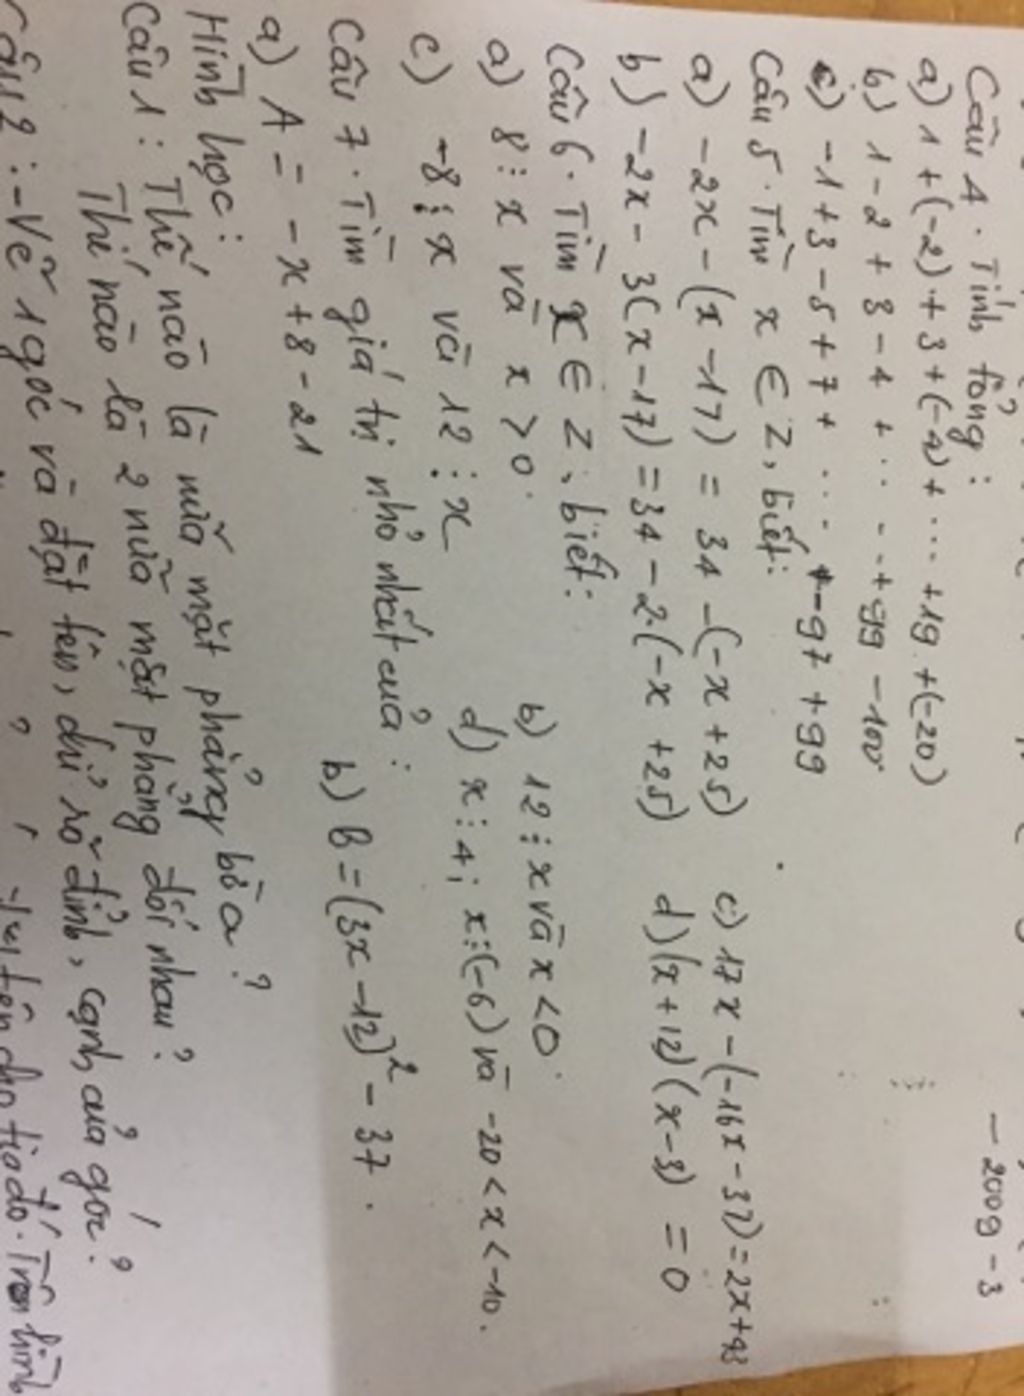 - 2009 - 3
Câu 4. Tính tổng:
a) 1 + (-2) + 3 + (-4) + ... + 19 + (-20)
b) 1 - 2 + 3 - 4 + ... - .. + 99 - 100
c) -1 + 3 - 5 + 7 + ... + - 97 + 99
Câu 5. Tìm x ∈ Z, biết:
a) -2x - (x - 17) = 34 - (-x + 25) c) 17x - (-16x - 37) = 2x + 43
b) -2x - 3(x - 17) = 34 - 2.(-x + 25) d) (x + 12)(x - 3) = 0
Câu 6. Tìm x ∈ Z, biết:
a) 8 ⋮ x và x > 0. b) 12 ⋮ x và x < 0.
c) -8 ⋮ x và 12 ⋮ x d) x ⋮ 4; x ⋮ (-6) và -20 < x < -10.
Câu 7. Tìm giá trị nhỏ nhất của:
a) A = - x + 8 - 21 b) B = (3x - 12)² - 37.
Hình học:
Câu 1: Thế nào là nửa mặt phẳng bờ a?
Thế nào là 2 nửa mặt phẳng đối nhau?
Câu 2: - Vẽ 1 góc và đặt tên, chỉ rõ đỉnh, cạnh của góc?
tên cho tia đó. Trên hình